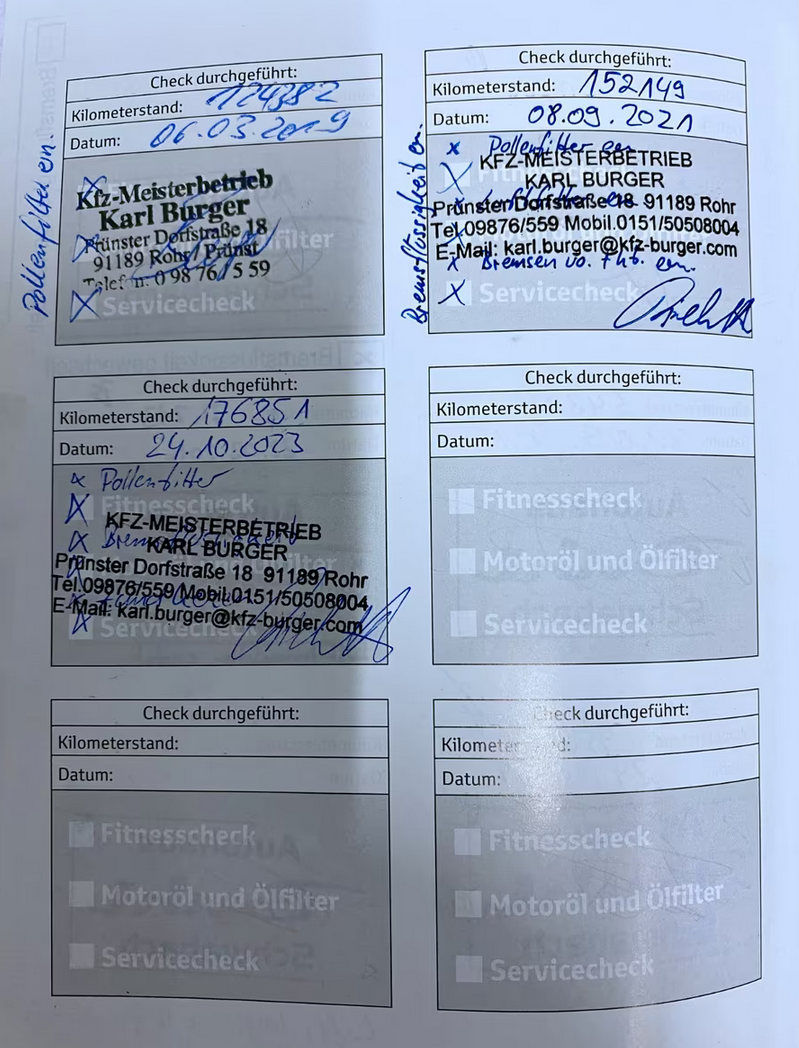 Check durchgeführt:
Kilometerstand: 124382
Datum: 06.03.2019
Pollenfilter ern.
Kfz-Meisterbetrieb
Karl Burger
Prünster Dorfstraße 18
91189 Rohr / Prünst
Telefon: 0 98 76 / 5 59
filter
Servicecheck
Check durchgeführt:
Kilometerstand: 152149
Datum: 08.09.2021
Bremsflüssigkeit ern.
x Pollenfilter ern
KFZ-MEISTERBETRIEB
KARL BURGER
Prünster Dorfstraße 18 91189 Rohr
Tel.09876/559 Mobil.0151/50508004
E-Mail: karl.burger@kfz-burger.com
x Bremsen vo. + ht. ern.
Servicecheck
Check durchgeführt:
Kilometerstand: 176851
Datum: 24.10.2023
x Pollenfilter
Fitnesscheck
KFZ-MEISTERBETRIEB
x Bremsflüssigkeit
KARL BURGER
Prünster Dorfstraße 18 91189 Rohr
Tel.09876/559 Mobil.0151/50508004
E-Mail: karl.burger@kfz-burger.com
Servicecheck
Check durchgeführt:
Kilometerstand:
Datum:
Fitnesscheck
Motoröl und Ölfilter
Servicecheck
Check durchgeführt:
Kilometerstand:
Datum:
Fitnesscheck
Motoröl und Ölfilter
Servicecheck
Check durchgeführt:
Kilometerstand:
Datum:
Fitnesscheck
Motoröl und Ölfilter
Servicecheck